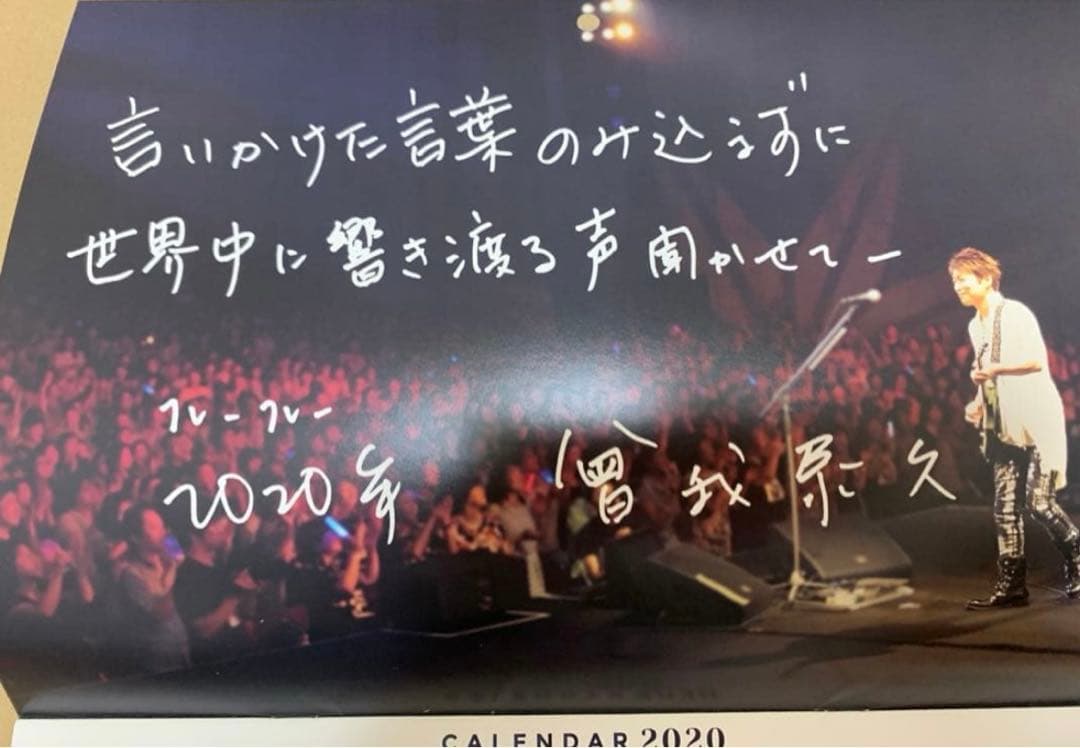 言いかけた言葉のみ込まずに
世界中に響き渡る声聞かせてー
フレーフレー
2020年 曾我泰久
CALENDAR 2020